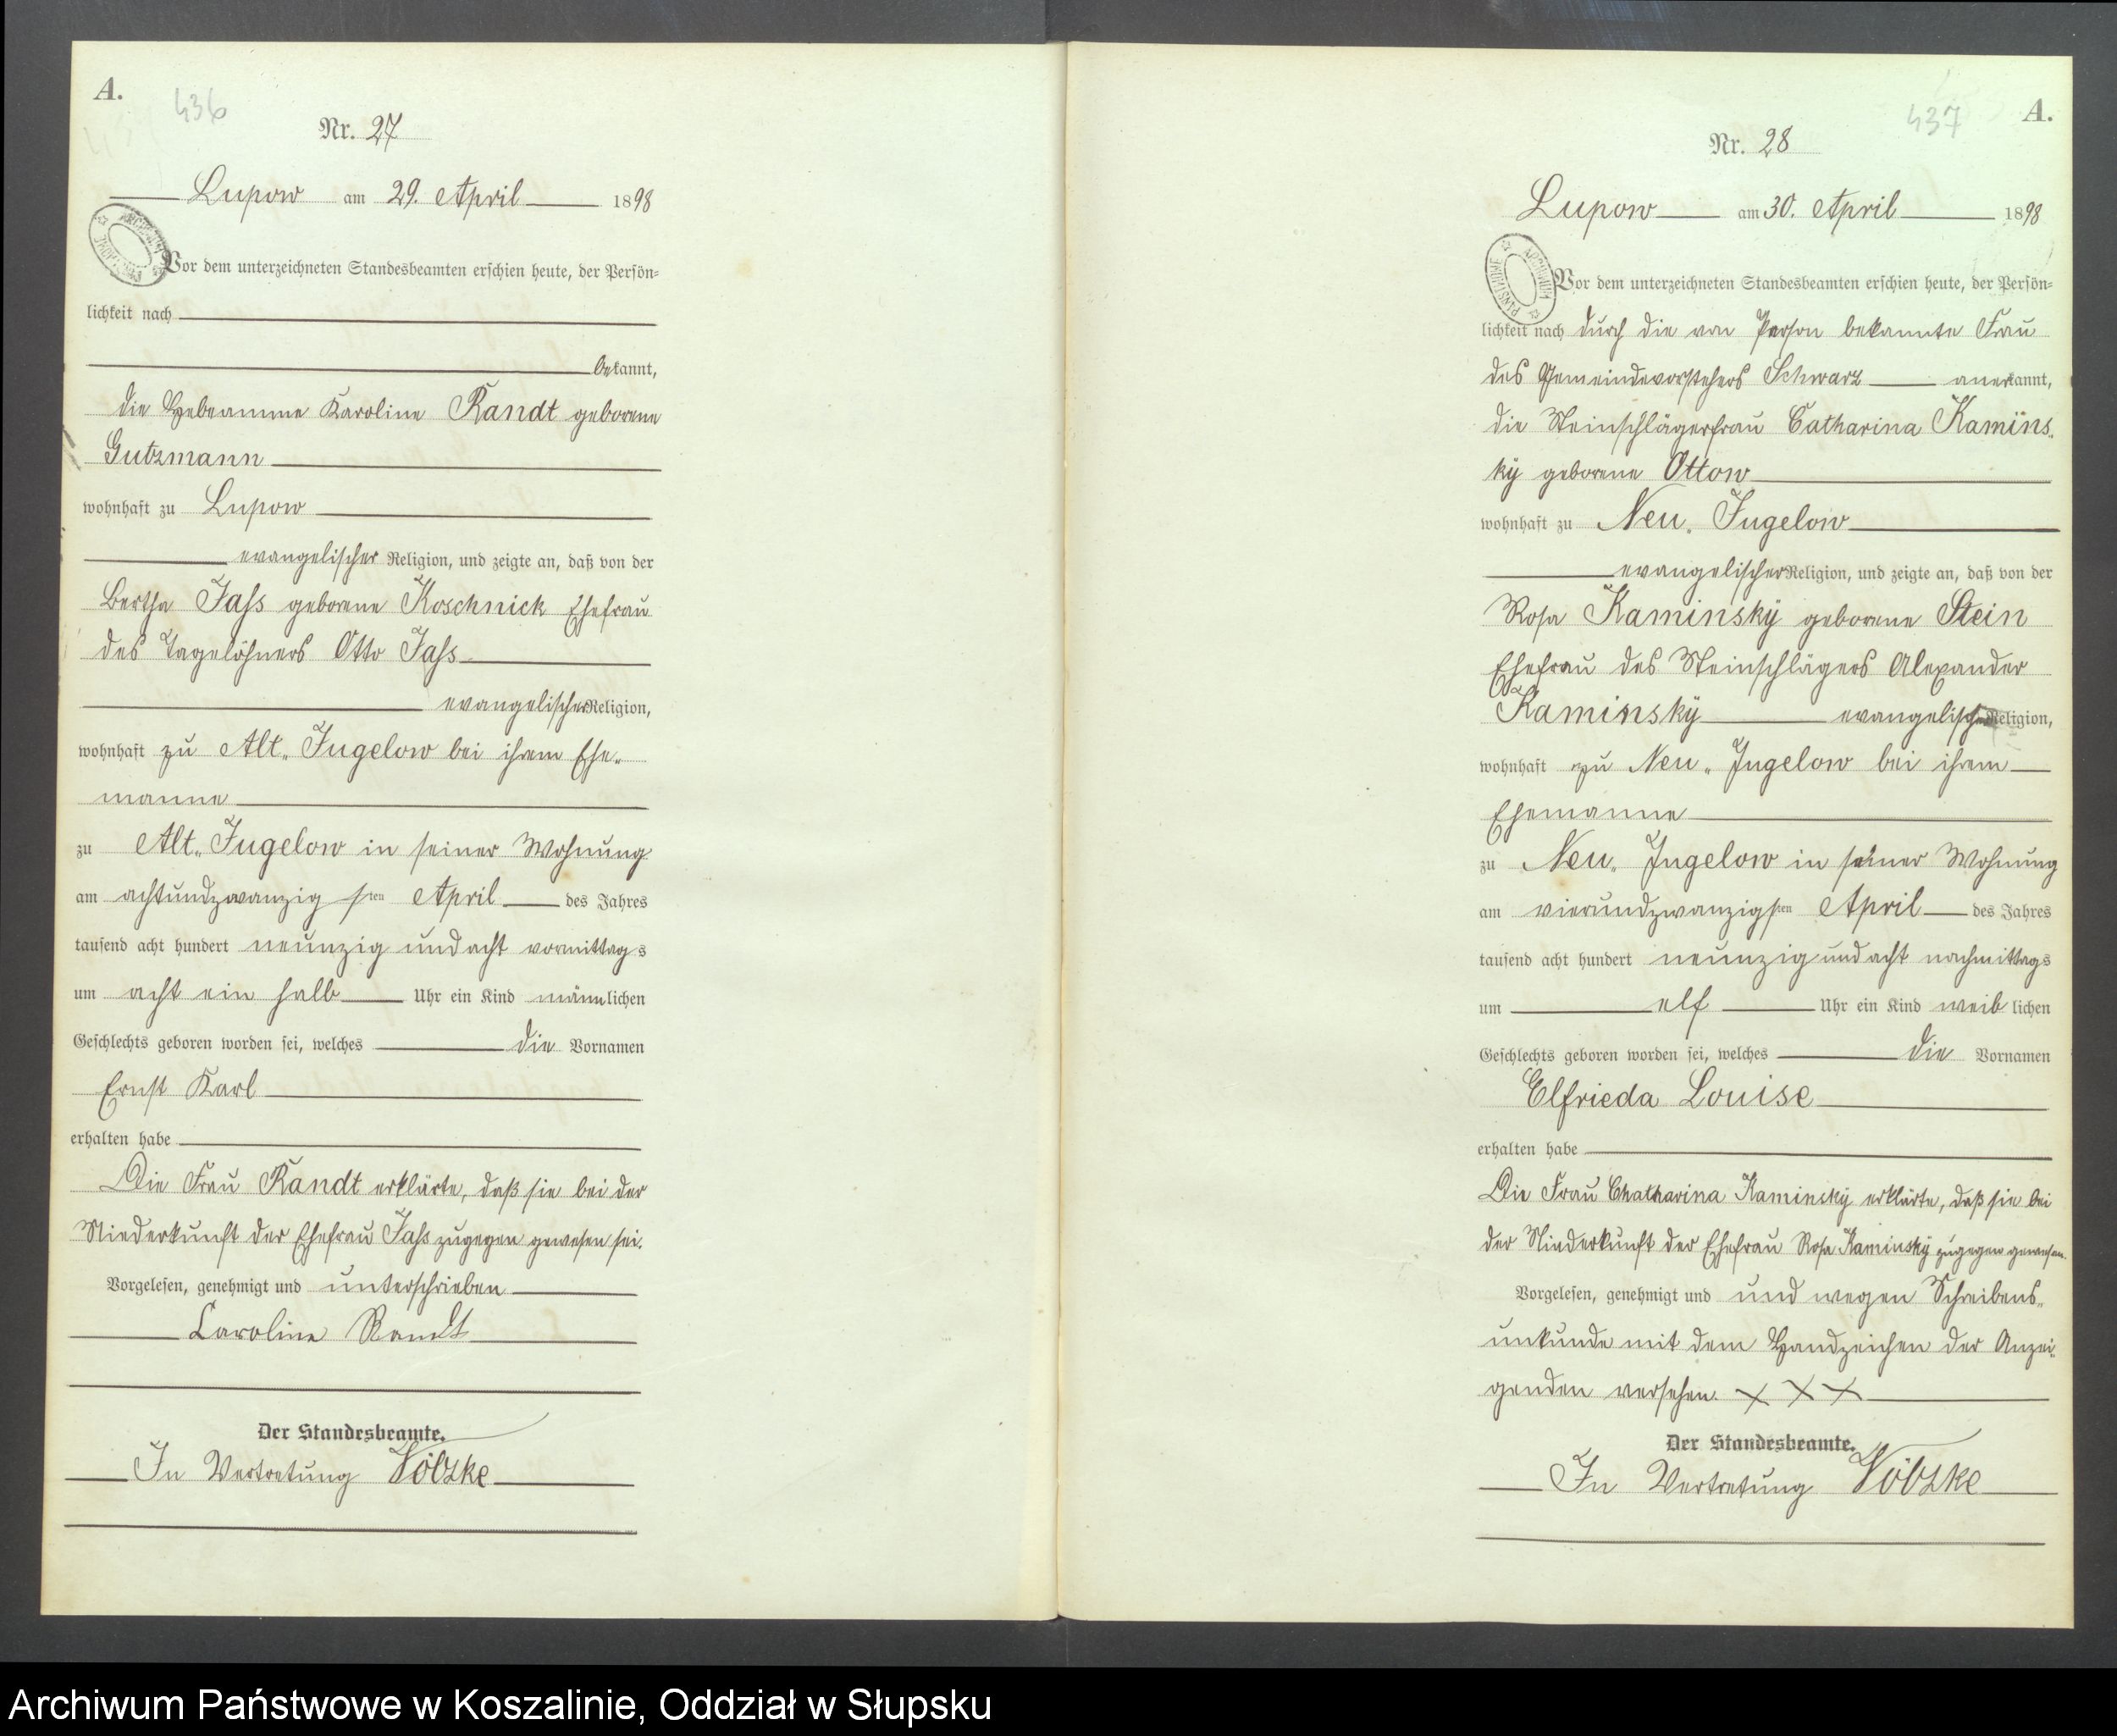 A.
436
Nr. 27
Lupow am 29. April 1898
Vor dem unterzeichneten Standesbeamten erschien heute, der Persön=
lichkeit nach
bekannt,
die Hebeamme Karoline Randt geborene
Gutzmann
wohnhaft zu Lupow
evangelischer Religion, und zeigte an, daß von der
Bertha Jass geborene Koschnick Ehefrau
des Tagelöhners Otto Jass
evangelischer Religion,
wohnhaft zu Alt-Jugelow bei ihrem Ehe-
manne
zu Alt-Jugelow in seiner Wohnung
am achtundzwanzigsten April des Jahres
tausend acht hundert neunzig und acht vormittags
um acht ein halb Uhr ein Kind männlichen
Geschlechts geboren worden sei, welches die Vornamen
Ernst Karl
erhalten habe
Die Frau Randt erklärte, daß sie bei der
Niederkunft der Ehefrau Jass zugegen gewesen sei.
Vorgelesen, genehmigt und unterschrieben
Caroline Randt
Der Standesbeamte.
In Vertretung Völzke
437
A.
Nr. 28
Lupow am 30. April 1898
Vor dem unterzeichneten Standesbeamten erschien heute, der Persön=
lichkeit nach durch die von Person bekannte Frau
des Gemeindevorstehers Schwarz anerkannt,
die Steinschlägerfrau Catharina Kamins-
ky geborene Ottow
wohnhaft zu Neu-Jugelow
evangelischer Religion, und zeigte an, daß von der
Rosa Kaminsky geborene Stein
Ehefrau des Steinschlägers Alexander
Kaminsky evangelischer Religion,
wohnhaft zu Neu-Jugelow bei ihrem
Ehemanne
zu Neu-Jugelow in seiner Wohnung
am vierundzwanzigsten April des Jahres
tausend acht hundert neunzig und acht nachmittags
um elf Uhr ein Kind weiblichen
Geschlechts geboren worden sei, welches die Vornamen
Elfrieda Louise
erhalten habe
Die Frau Chatharina Kaminsky erklärte, daß sie bei
der Niederkunft der Ehefrau Rosa Kaminsky zugegen gewesen.
Vorgelesen, genehmigt und und wegen Schreibens-
unkunde mit dem Handzeichen der Anzei-
genden versehen. X X X
Der Standesbeamte.
In Vertretung Völzke
Archiwum Państwowe w Koszalinie, Oddział w Słupsku